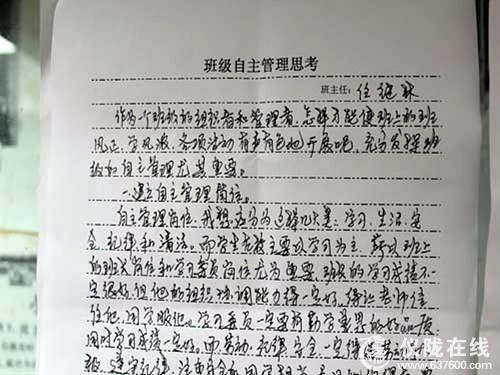 班级自主管理思考
班主任:任继
作为一个班级的组织者和管理者,怎样才能使班上的班
风正、学风浓、各项活动有声有色地开展呢,充分发挥班
级的自主管理尤其重要。
一.建立自主管理岗位。
自主管理岗位,我想应分为这样几大类:学习、生活、安
全、纪律和清洁。而学生在校主要以学习为主,所以班上
的班长岗位和学习委员岗位尤为重要,班长的学习成绩不一
定很好,但他的组织协调能力得一定好,得让老师信
任他,同学服他。学习委员一定要有勤学善思的好品质,
同时学习成绩一定好。而劳动、纪律、安全一定得
仪陇在线
www.637600.com